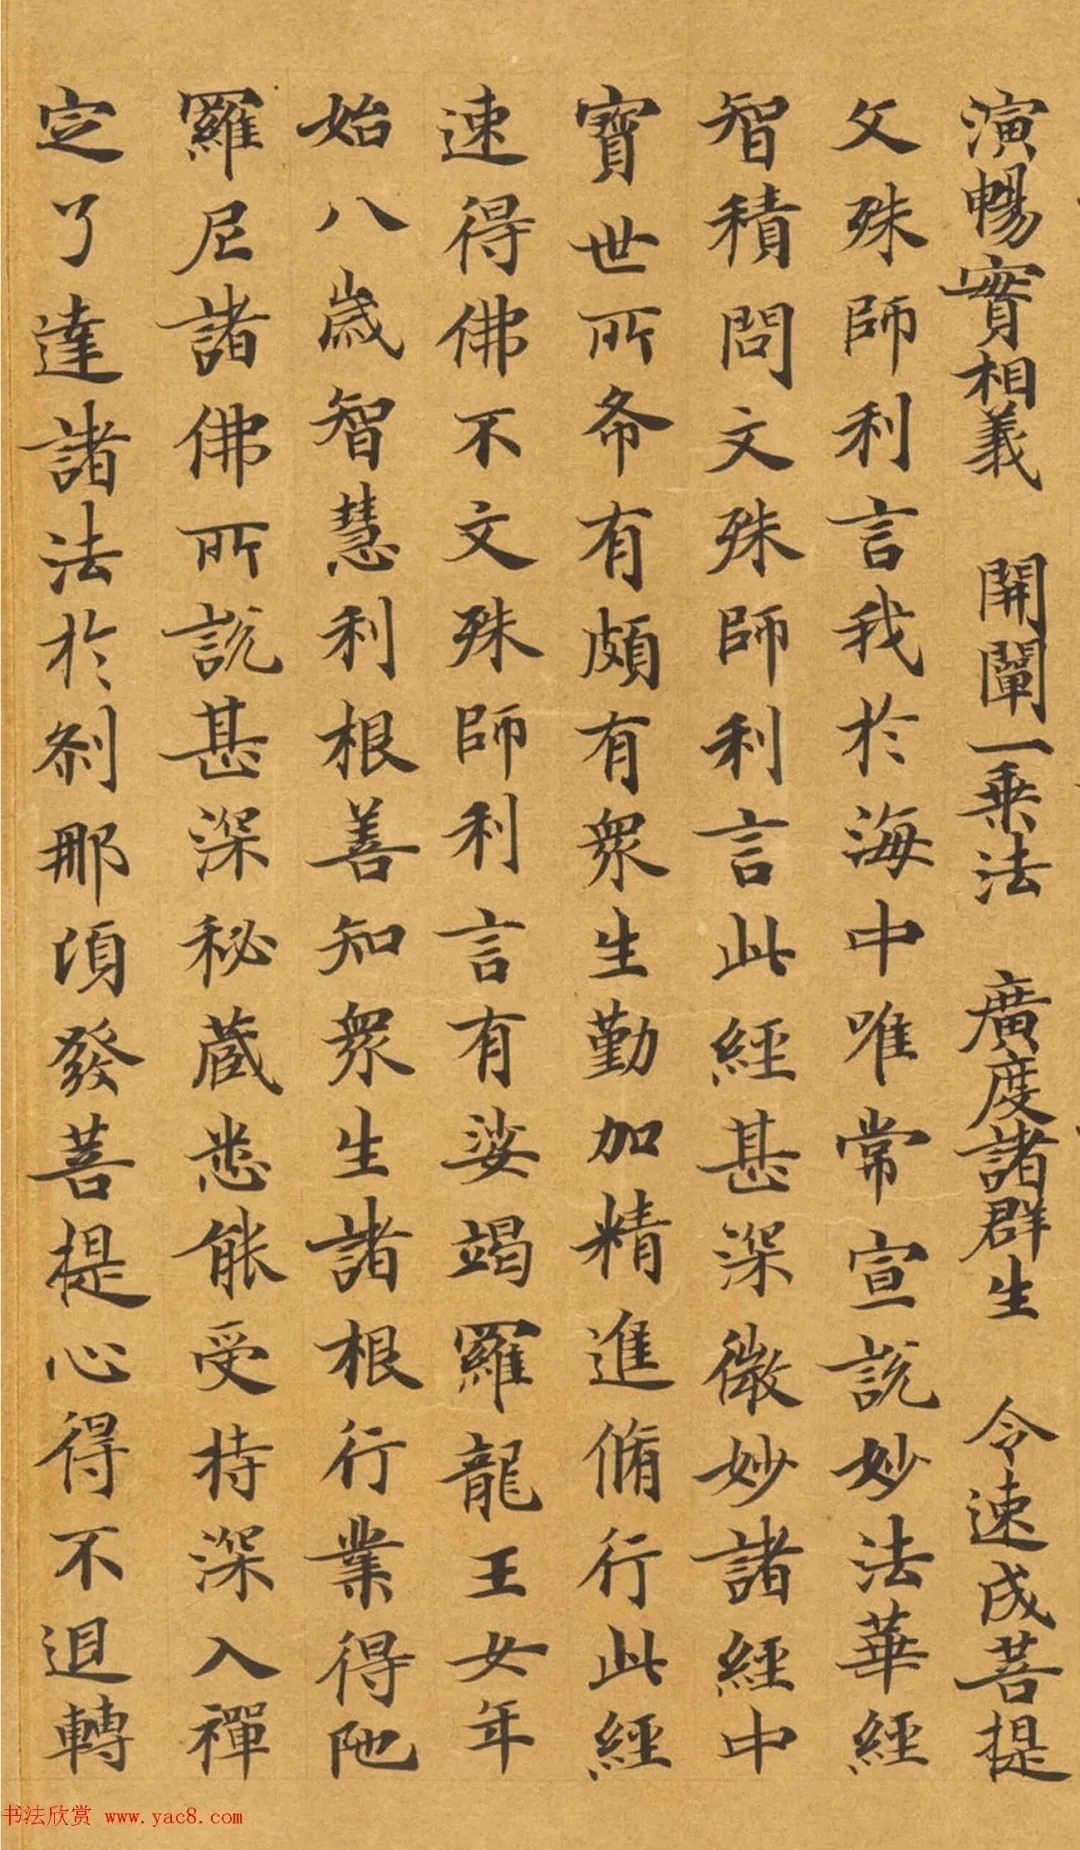 演暢實相義　開闡一乗法　廣度諸群生　令速成菩提
文殊師利言我於海中唯常宣說妙法華經
智積問文殊師利言此經甚深微妙諸經中
寶世所希有頗有衆生勤加精進脩行此經
速得佛不文殊師利言有娑竭羅龍王女年
始八歲智慧利根善知衆生諸根行業得陁
羅尼諸佛所說甚深秘藏悉能受持深入禪
定了達諸法於剎那頃發菩提心得不退轉
书法欣赏 www.yac8.com